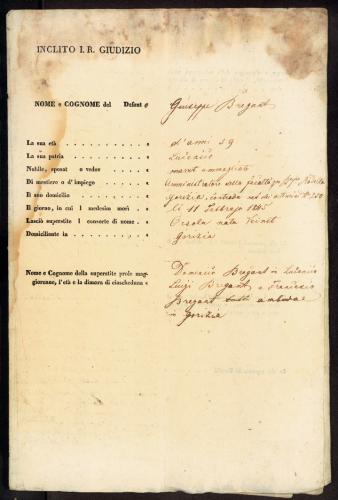 INCLITO I. R. GIUDIZIO
NOME e COGNOME del Defunto Giuseppe Bregant
La sua età d'anni 59
La sua patria Lucinico
Nubile, sposat o vedov
Di mestiere o d'impiego Amministratore della
Il suo domicilio Gorizia, contrada
Il giorno, in cui l medesim morì li 11 Febbrajo 1845
Lasciò superstite l consorte di nome Orsola nata
Domiciliante in Gorizia
Nome e Cognome della superstite prole mag-
giorenne, l'età e la dimora di ciascheduna
Domenico Bregant in Lucinico
Luigi Bregant e Francesco
Bregant tutti
in Gorizia